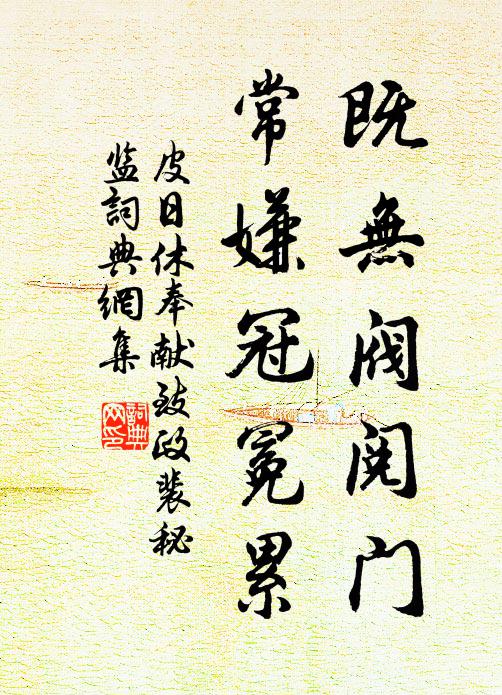 既無閥閲门
常嫌冠冕累
皮日休奉献致政裴秘
监詞典網集
詞典
网印